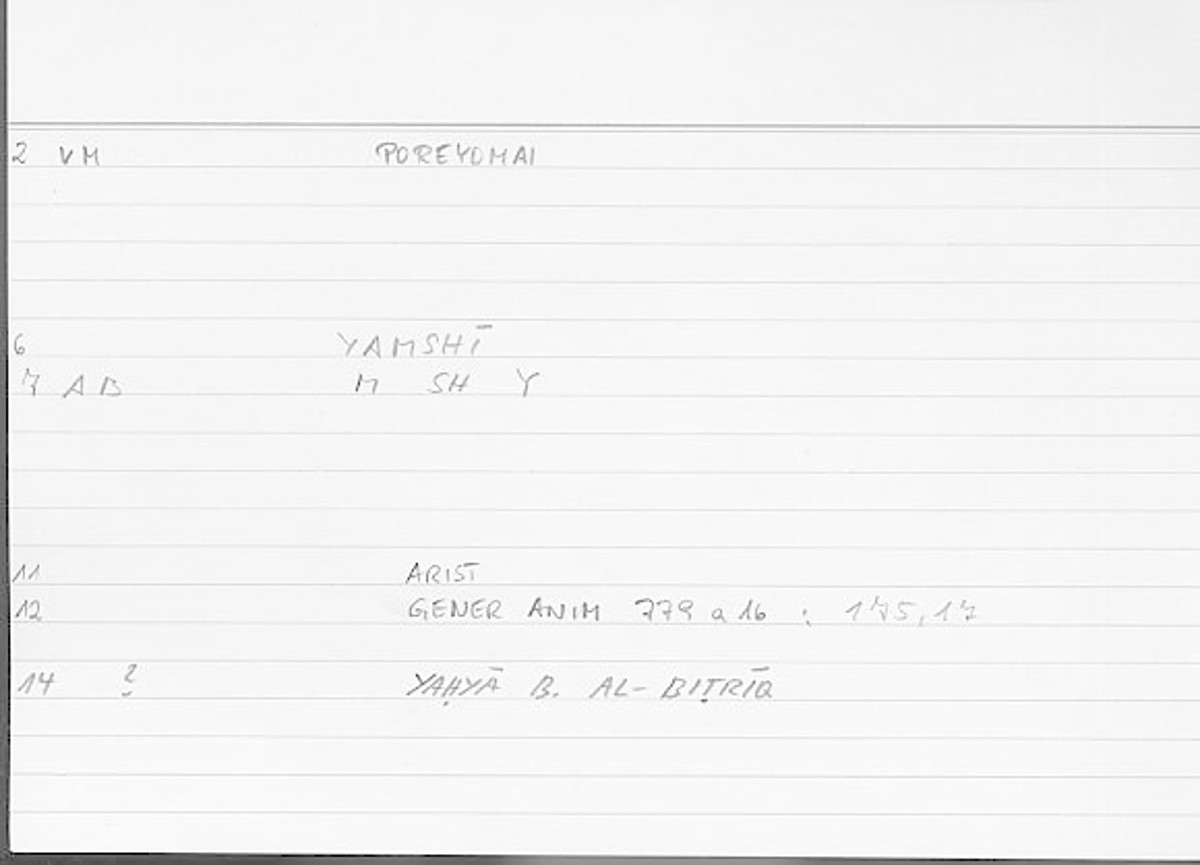 2 VM POREYOMAI
6 YAMSHĪ
7 AB M SH Y
11 ARIST
12 GENER ANIM 779 a 16 : 175,17
14 ? YAḤYĀ B. AL-BIṬRĪQ